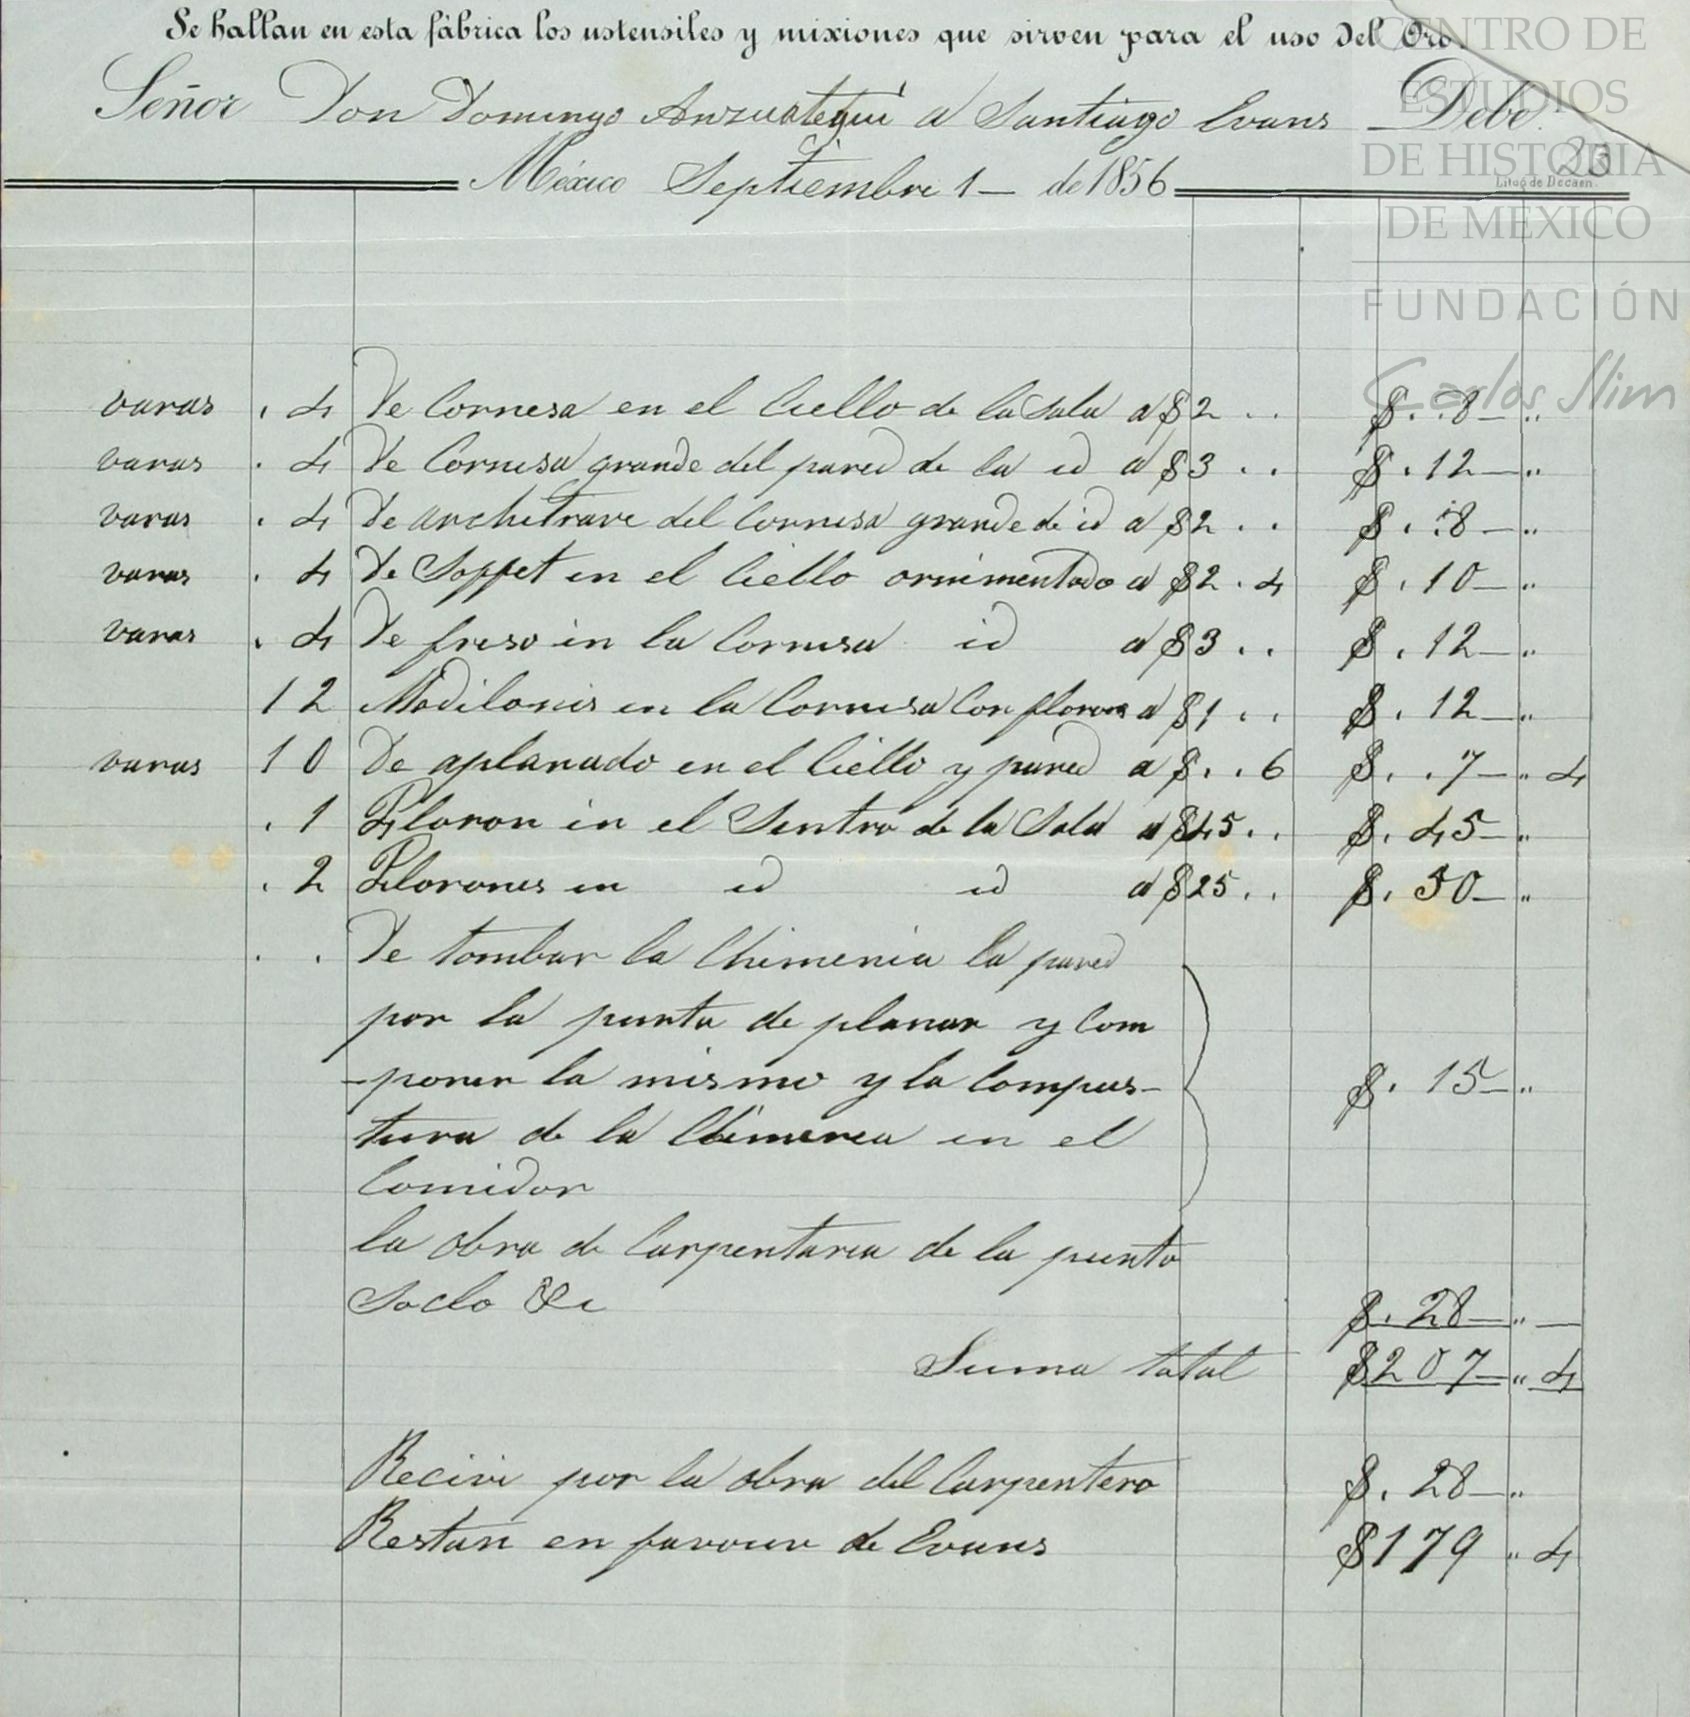 Se hallan en esta fábrica los ustensiles y mixiones que sirven para el uso del Oro.
Señor Don Domingo Anzuategui a Santiago Evans Debe
23
Litog de Decaen.
México Septiembre 1 — de 1856
CENTRO DE
ESTUDIOS
DE HISTORIA
DE MÉXICO
FUNDACIÓN
Carlos Slim
varas . 4 De Cornesa en el Ciello de la Sala a $2 .. $..8— "
varas . 4 De Cornesa grande del pared de la id a $3 .. $.12— "
varas . 4 De architrave del Cornesa grande de id a $2 .. $..8— "
varas . 4 De Soffet en el Ciello ornimentado a $2 . 4 $.10— "
varas . 4 De freso in la Cornesa id a $3 .. $.12— "
12 Modilones en la Cornesa Con florones a $1 .. $.12— "
varas 10 De aplanado en el Ciello y pared a $..6 $..7— " 4
. 1 Floron in el Sentro de la Sala a $45.. $.45— "
. 2 Florones en id id a $25.. $.50— "
. . De tombar la Chimenia la pared
por la punta de planar y Com
-poner la mismo y la Compus- $. 15— "
tura de la Chimenea en el
Comidor
la obra de Carpentaria de la punta
Soclo &c $. 28— " —
Suma total $207— " 4
Recivi por la obra del Carpentero $. 28— "
Restan en favour de Evans $179 " 4